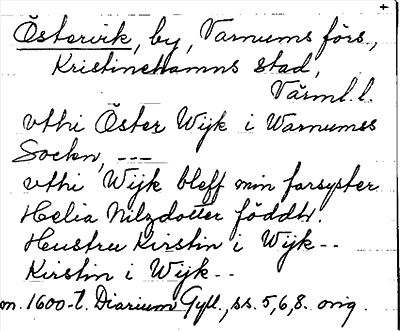 +
Östervik, by, Varnums förs.,
Kristinehamns stad,
Värml. l.
vthi Öster Wijk i Warnumss
Sockn, ---
vthi Wijk bleff min farsyster
Helia Nilzdotter föddh.
Heustru Kirstin i Wijk--
Kirstin i Wijk--
m. 1600-t. Diarium Gyll., ss. 5, 6, 8. orig.